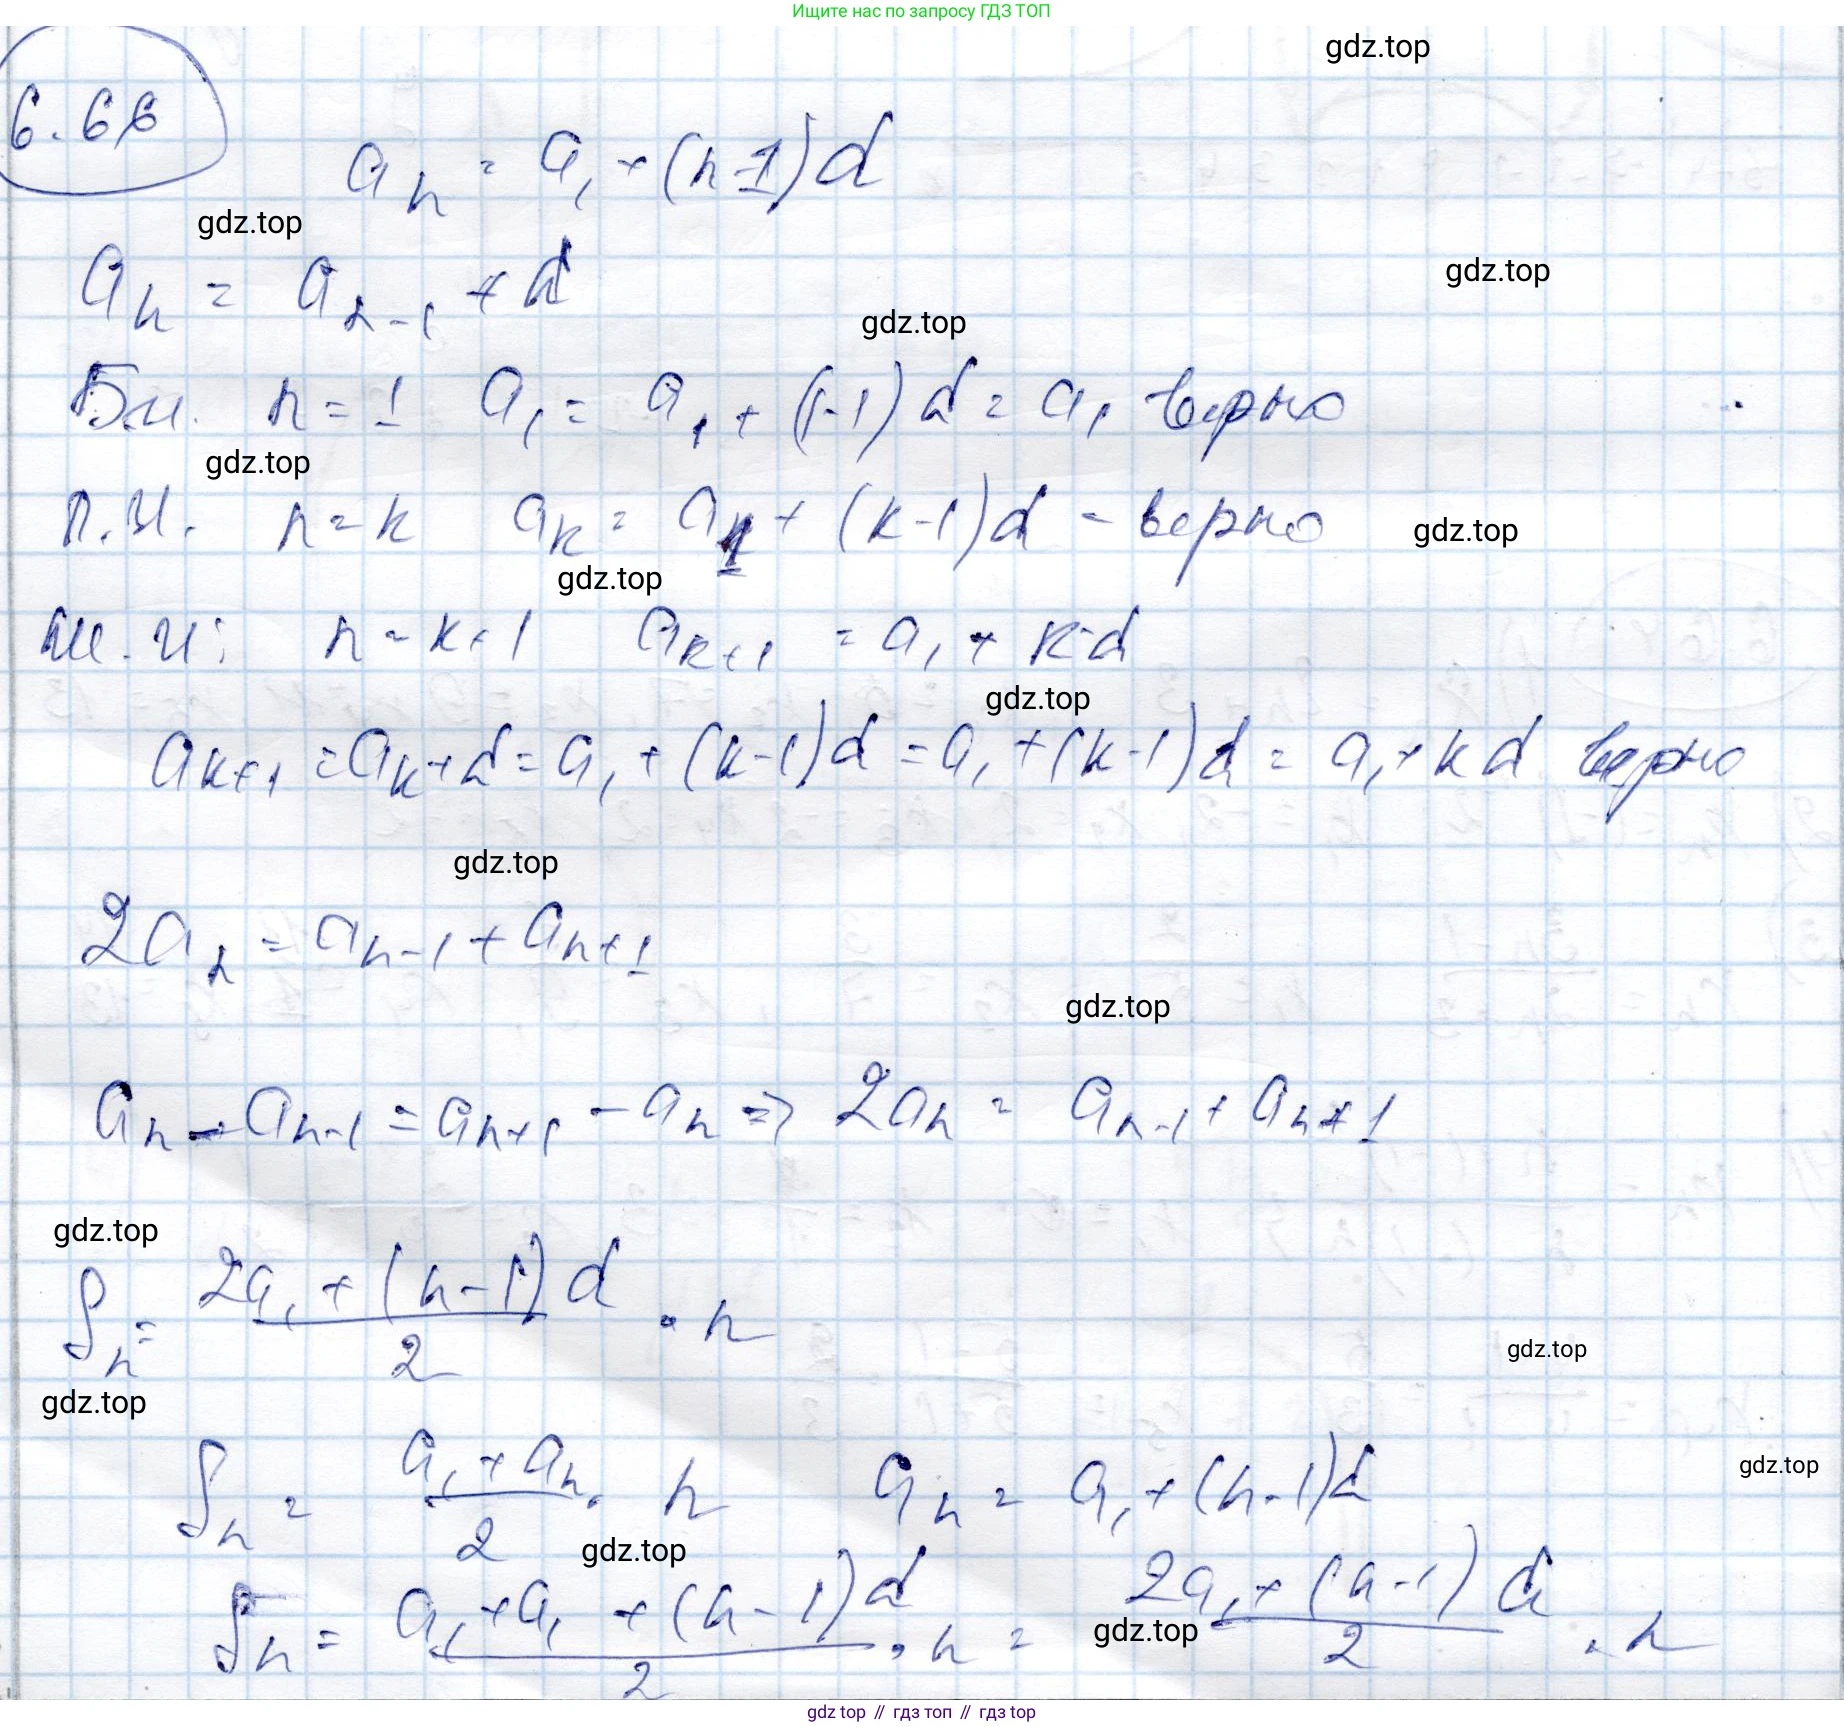 Ищите нас по запросу ГДЗ ТОП
gdz.top
6.66
aₙ = a₁ + (n-1)d
gdz.top
aₙ = aₙ₋₁ + d
gdz.top
gdz.top
Б.и. n = 1 a₁ = a₁ + (1-1)d = a₁ верно
gdz.top
П.И. n = k aₖ = a₁ + (k-1)d - верно
gdz.top
gdz.top
Ш.И: n = k+1 aₖ₊₁ = a₁ + k·d
gdz.top
aₖ₊₁ = aₖ + d = a₁ + (k-1)d = a₁ + (k-1)d = a₁ + kd верно
gdz.top
2aₙ = aₙ₋₁ + aₙ₊₁
gdz.top
aₙ - aₙ₋₁ = aₙ₊₁ - aₙ => 2aₙ = aₙ₋₁ + aₙ₊₁
gdz.top
Sₙ = (2a₁ + (n-1)d)/2 · n
gdz.top
gdz.top
Sₙ = (a₁ + aₙ)/2 · n aₙ = a₁ + (n-1)d
gdz.top
gdz.top
Sₙ = (a₁ + a₁ + (n-1)d)/2 · n = (2a₁ + (n-1)d)/2 · n
gdz.top
gdz top // гдз топ // gdz top